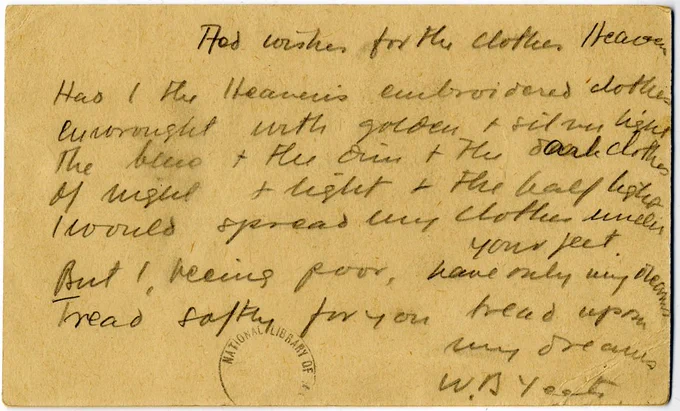 Had wishes for the clothes Heaven
Had I the Heavens embroidered clothes
enwrought with golden + silver light
The blue + the dim + the dark clothes
Of night + light + the half light
I would spread my clothes under
your feet
But I, being poor, have only my dreams
Tread softly for you tread upon
my dreams
W.B Yeats.
NATIONAL LIBRARY OF